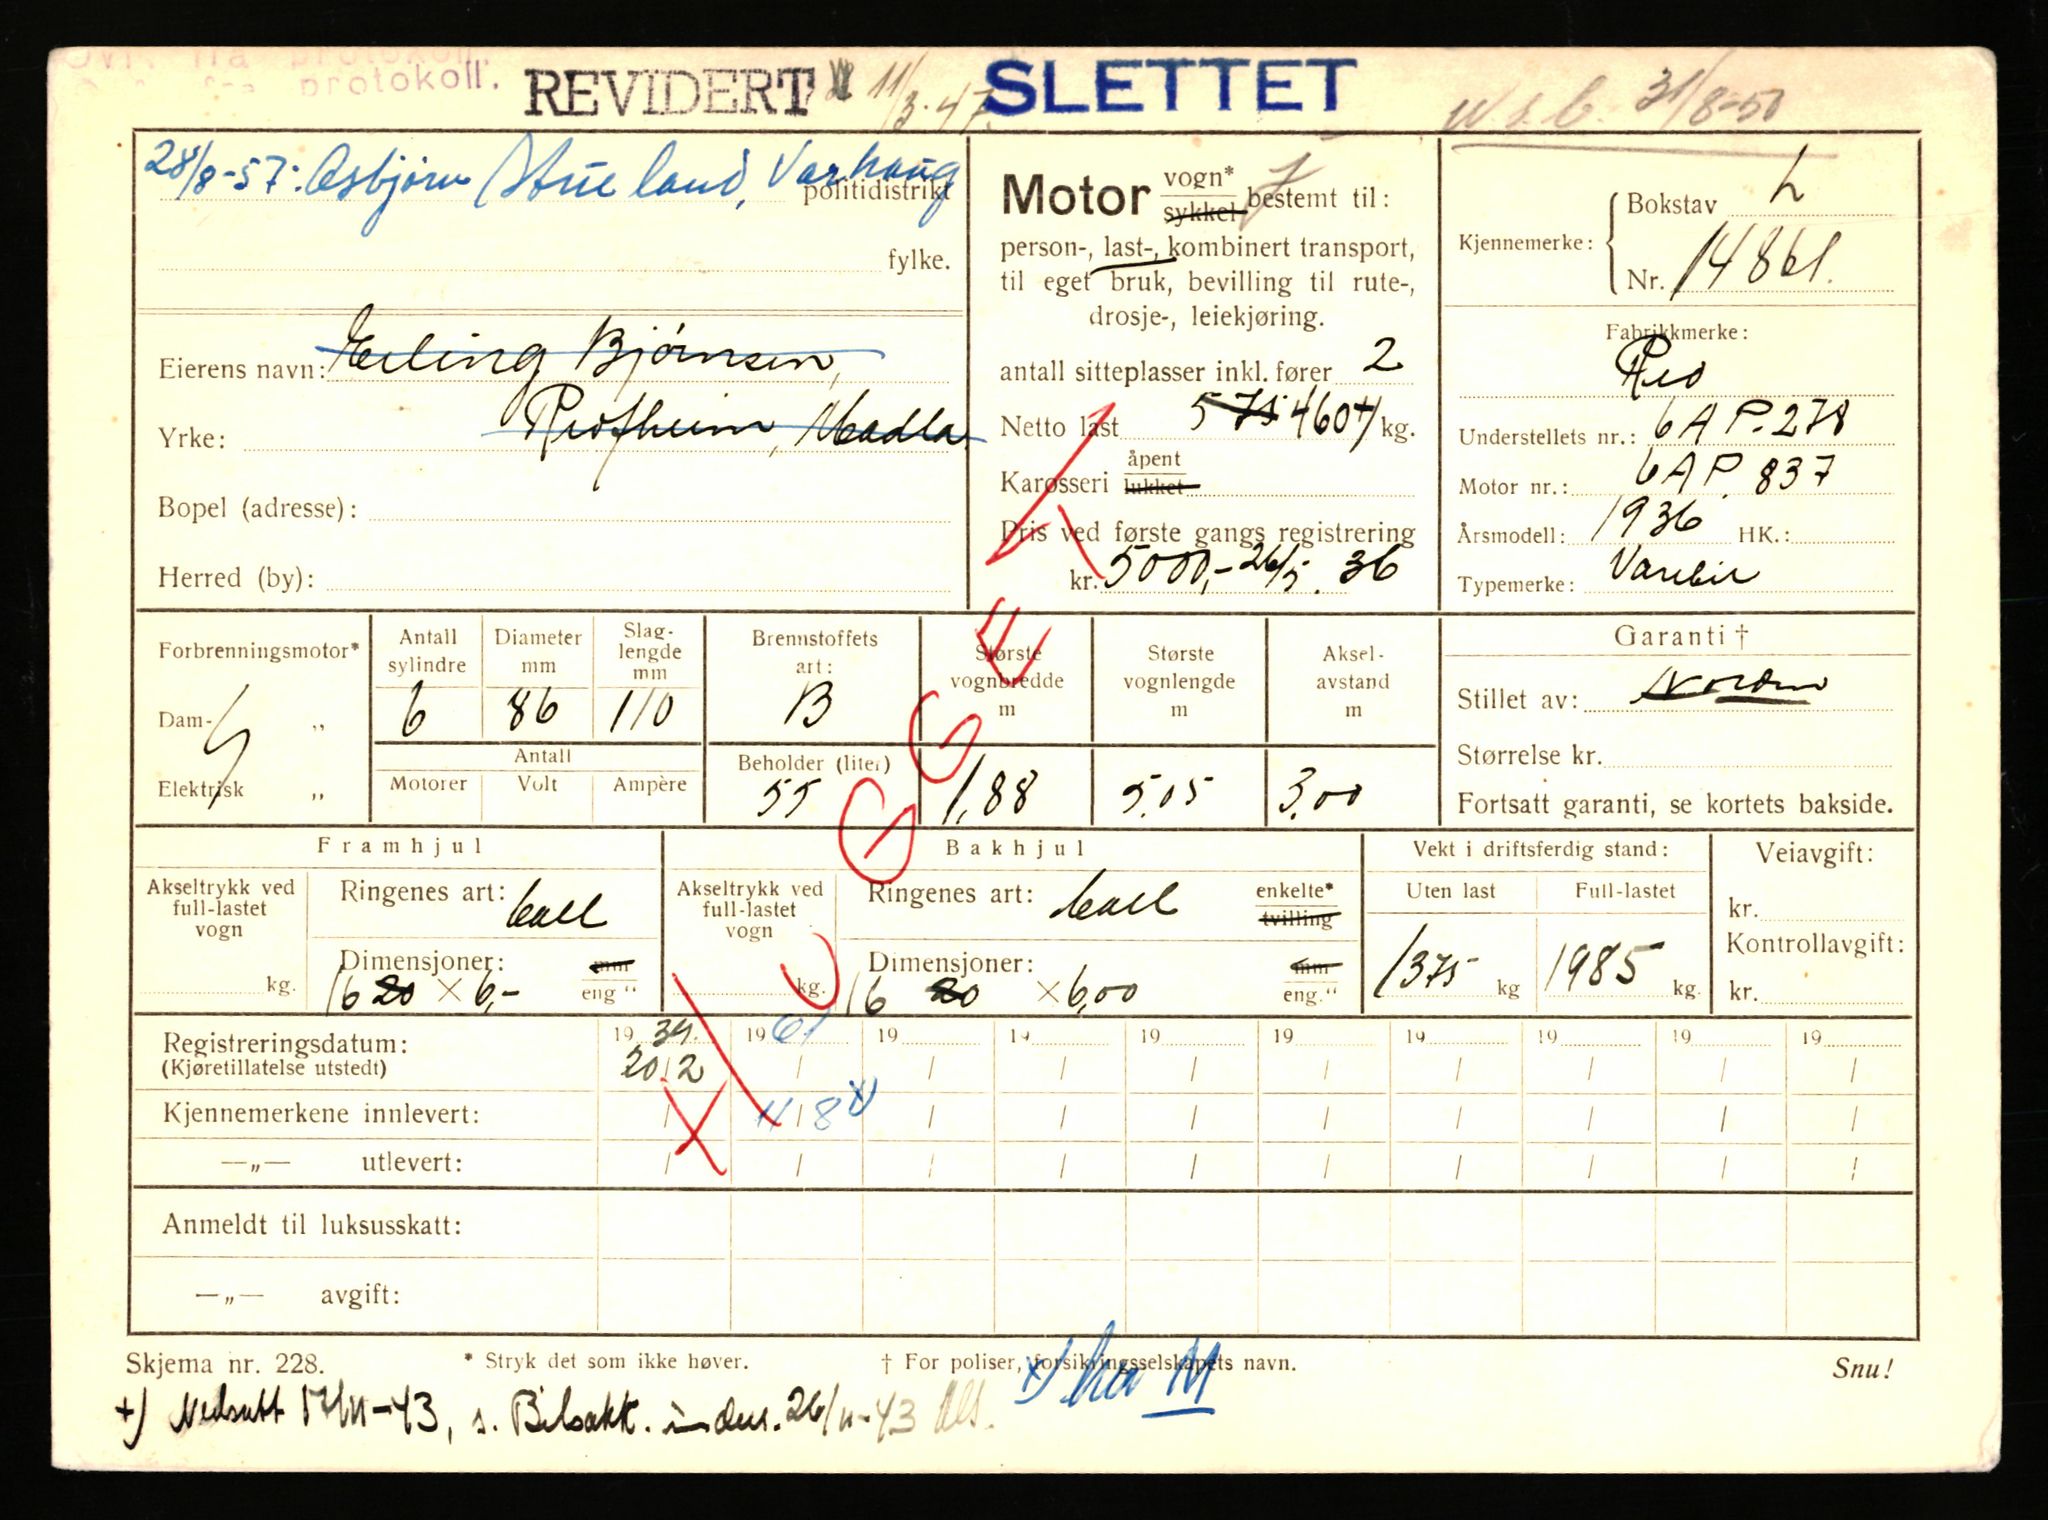 Ovf. fra protokoll.
fra protokoll.
REVIDERT 11/3-47. SLETTET 31/8-50
28/8-57: Asbjørn Stueland, Varhaug
politidistrikt
fylke.
Eierens navn: Erling Bjørnsen,
Yrke: Madla.
Bopel (adresse):
Herred (by):
Motor vogn* sykkel bestemt til:
person-, last-, kombinert transport,
til eget bruk, bevilling til rute-,
drosje-, leiekjøring.
antall sitteplasser inkl. fører 2
Netto last 575 460 +) kg.
Karosseri åpent lukket
Pris ved første gangs registrering
kr. 5000,- 26/5. 36
Kjennemerke: Bokstav L
Nr. 14861.
Fabrikkmerke:
Reo
Understellets nr.: 6AP.278
Motor nr.: 6AP.837
Årsmodell: 1936 HK.:
Typemerke: Varebil
Forbrenningsmotor*
Dam- „
Elektrisk „
Antall sylindre
6
Diameter mm
86
Slag-lengde mm
110
Antall
Motorer Volt Ampère
Brennstoffets art:
B
Beholder (liter)
55
Største vognbredde m
1,88
Største vognlengde m
5.05
Aksel-avstand m
3.00
Garanti †
Stillet av: Norden
Størrelse kr.
Fortsatt garanti, se kortets bakside.
Framhjul
Akseltrykk ved full-lastet vogn
kg.
Ringenes art: ball
Dimensjoner: mm
16 20 × 6,- eng "
Bakhjul
Akseltrykk ved full-lastet vogn
kg.
Ringenes art: ball enkelte* tvilling
Dimensjoner: mm
16 20 × 6,00 eng."
Vekt i driftsferdig stand:
Uten last Full-lastet
1375 kg 1985 kg.
Veiavgift:
kr.
Kontrollavgift:
kr.
Registreringsdatum: 19 39. 19 61 19 19 19 19 19 19 19 19
(Kjøretillatelse utstedt) 20/2 / / / / / / / / /
Kjennemerkene innlevert: / 11/8 x) / / / / / / / /
—„— utlevert: / / / / / / / / / /
Anmeldt til luksusskatt:
—„— avgift:
HUGGET
Skjema nr. 228. * Stryk det som ikke høver. † For poliser, forsikringsselskapets navn. Snu!
x) M
+) Nedsatt 17/11-43, s. Bilsakk. 26/11-43